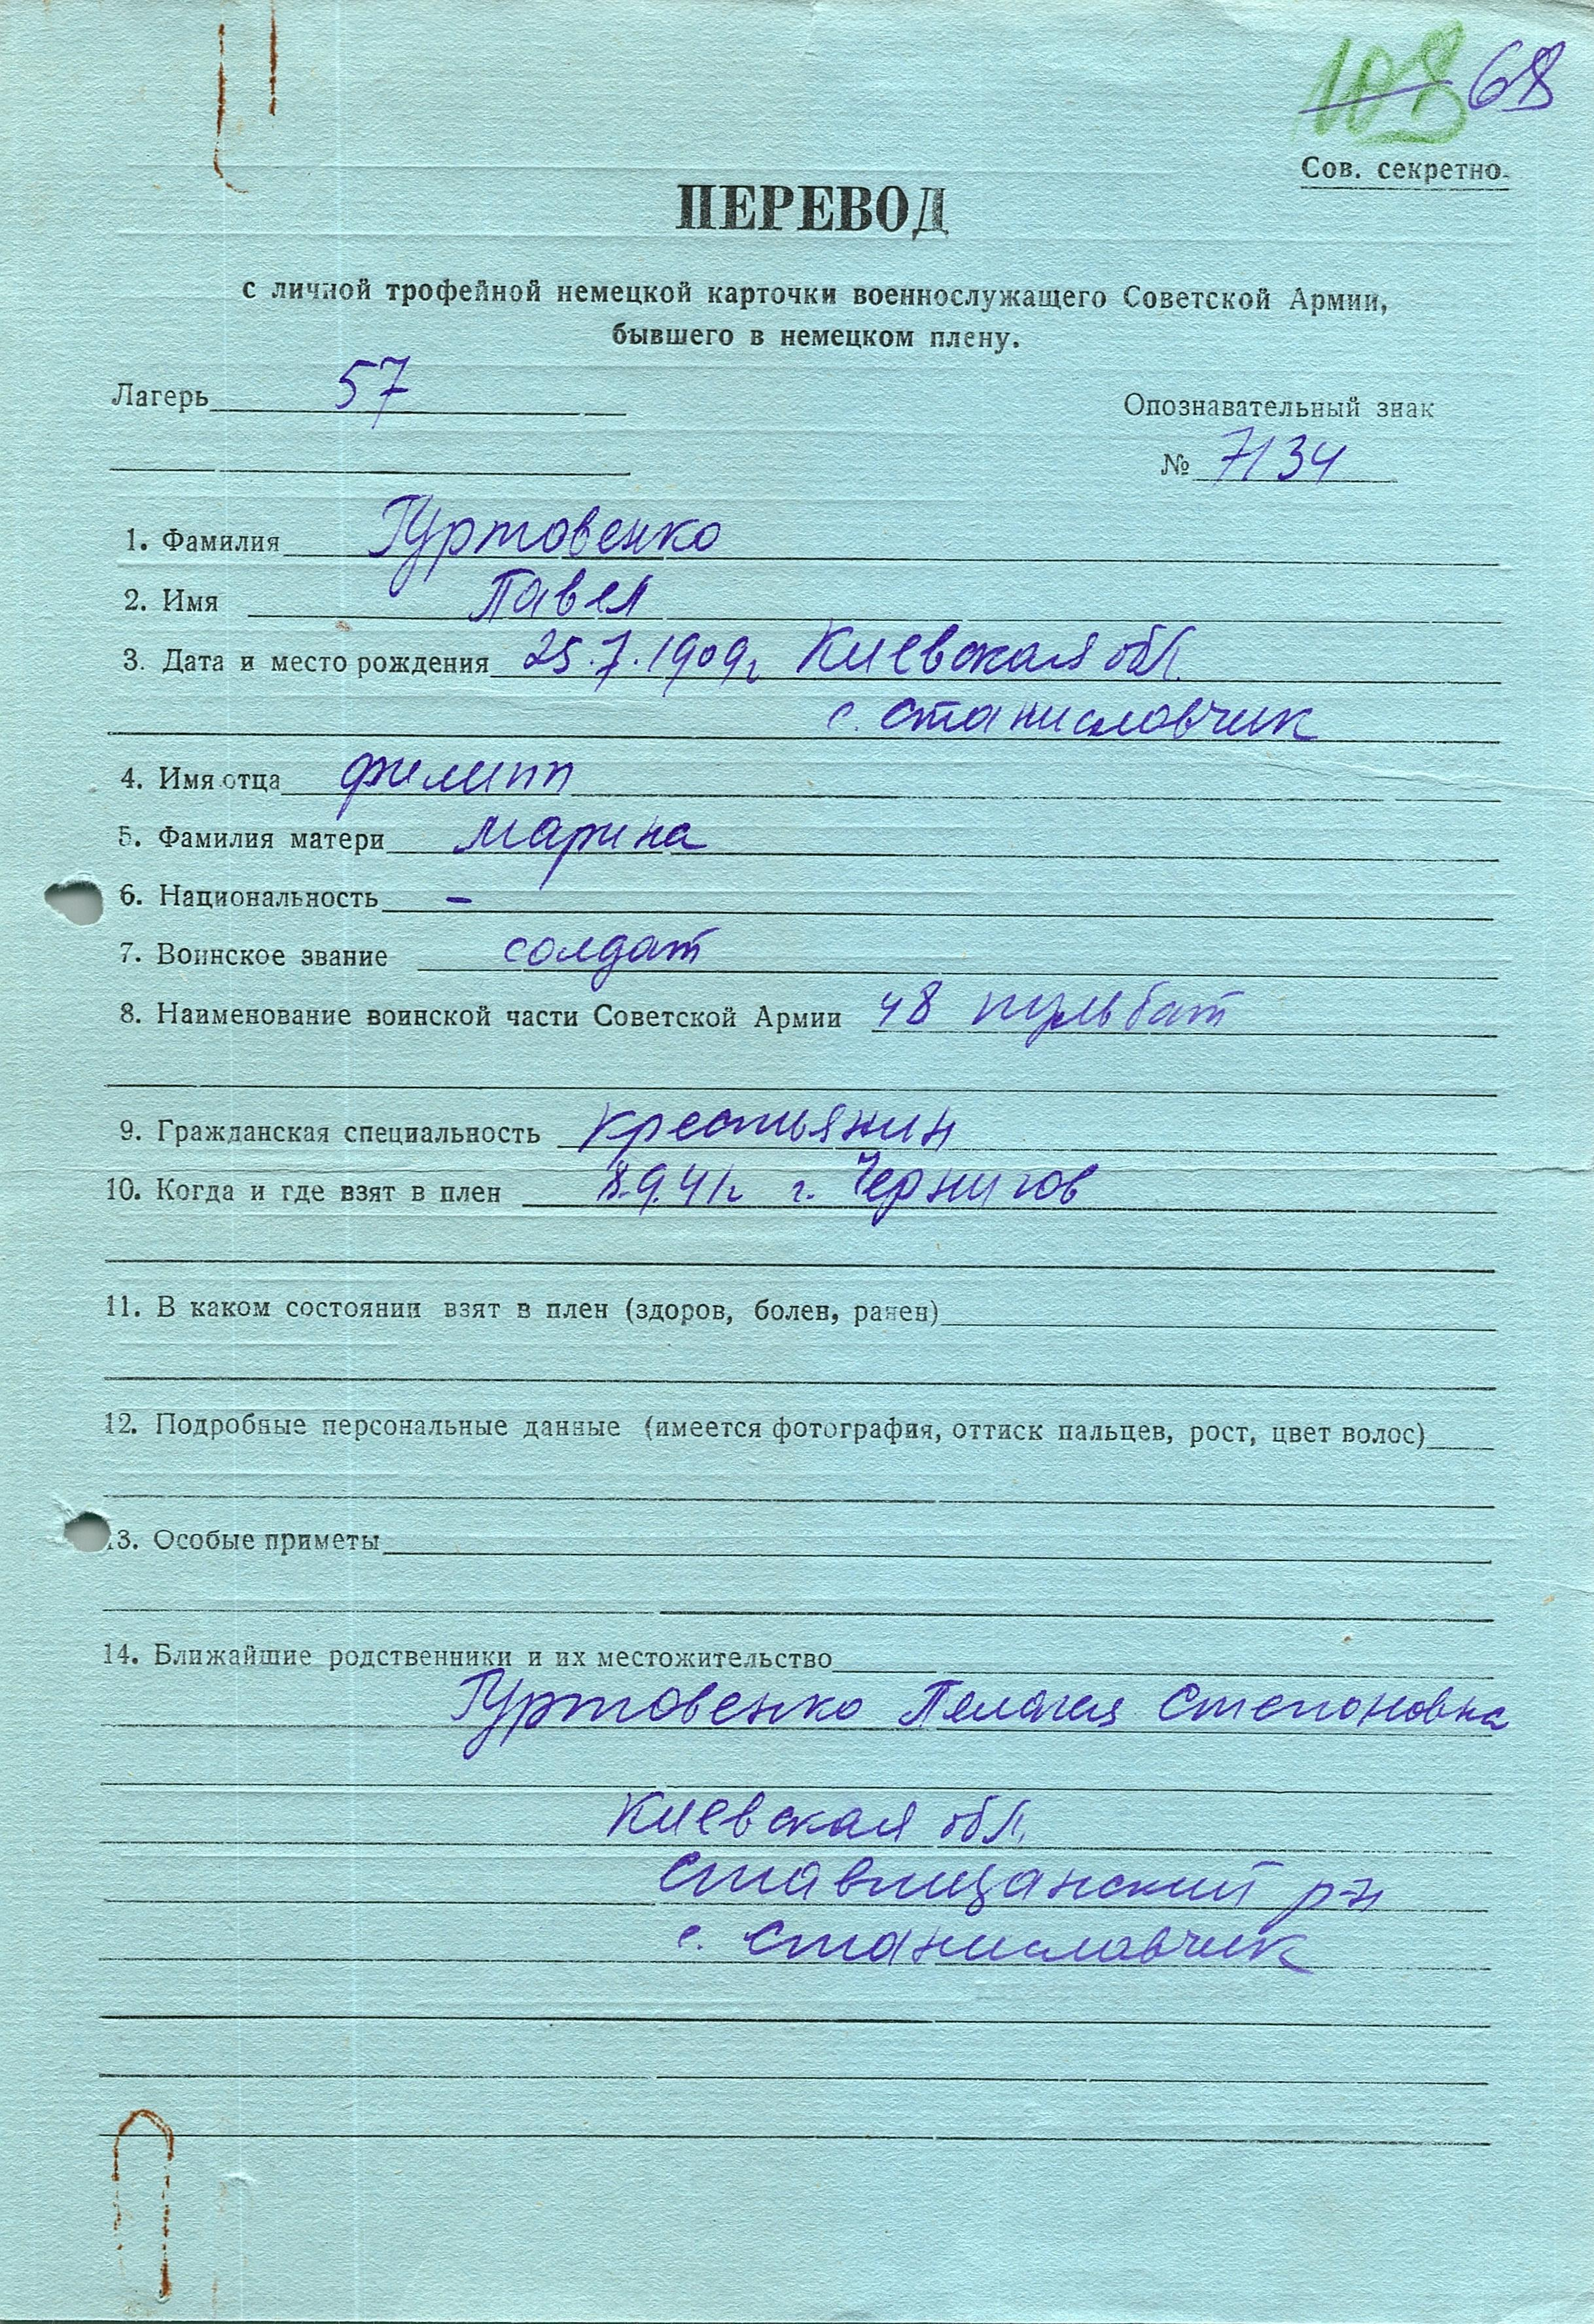 108 68
Сов. секретно.
ПЕРЕВОД
с личной трофейной немецкой карточки военнослужащего Советской Армии,
бывшего в немецком плену.
Лагерь 57
Опознавательный знак
№ 7134
1. Фамилия Гуртовенко
2. Имя Павел
3. Дата и место рождения 25.7.1909г Киевская обл.
с. Станиславчик
4. Имя отца Филипп
5. Фамилия матери Марина
6. Национальность -
7. Воинское звание солдат
8. Наименование воинской части Советской Армии 48 пульбат
9. Гражданская специальность крестьянин
10. Когда и где взят в плен 8.9.41г. г. Чернигов
11. В каком состоянии взят в плен (здоров, болен, ранен)
12. Подробные персональные данные (имеется фотография, оттиск пальцев, рост, цвет волос)
13. Особые приметы
14. Ближайшие родственники и их местожительство
Гуртовенко Пелагея Степановна
Киевская обл.
Ставищанский р-н
с. Станиславчик